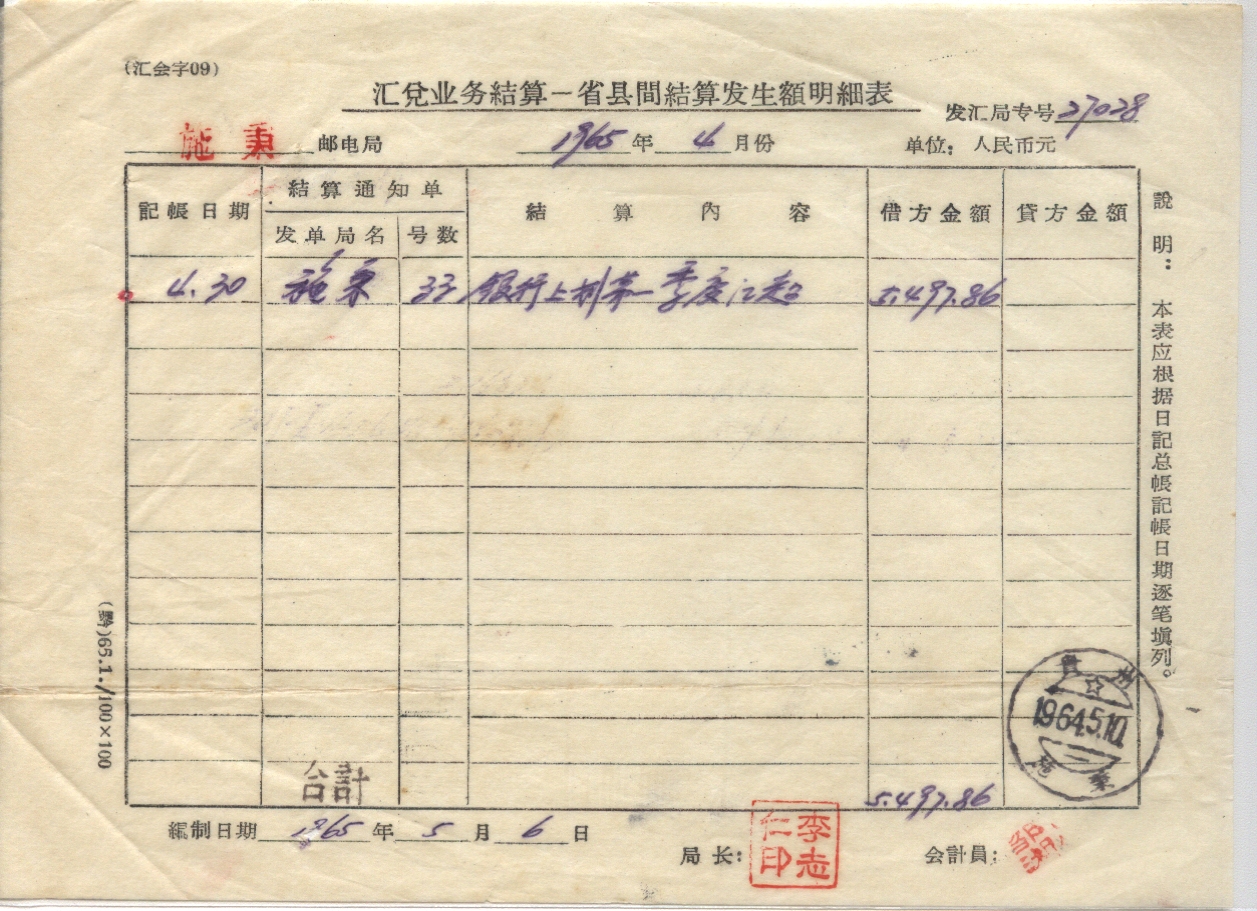 (汇会字09)
汇兌业务結算－省县間結算发生額明細表
发汇局专号27028
施秉邮电局 1965年4月份 单位：人民币元
記帳日期 結算通知单 結算內容 借方金額 貸方金額
发单局名 号数
4.30 施秉 33 银行上划第一季度汇差 5.497.86
合計 5.497.86
編制日期1965年5月6日
局长： 李志仁印 会計員：
說明：本表应根据日記总帳記帳日期逐笔塡列。
(黔)65.1./100×100
貴州
1964.5.10
施秉